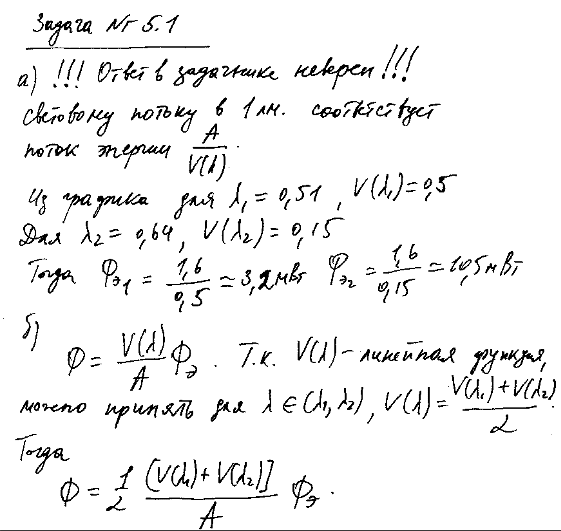 Задача № 5.1
а) !!! Ответ в задачнике неверен !!!
световому потоку в 1 лм. соответствует
поток энергии A/V(λ).
Из графика для λ₁ = 0,51, V(λ₁) = 0,5
Для λ₂ = 0,64, V(λ₂) = 0,15
Тогда Φэ₁ = 1,6/0,5 ≃ 3,2 мВт Φэ₂ = 1,6/0,15 ≃ 10,5 мВт
б)
Φ = V(λ)/A Φэ. Т.к. V(λ) – линейная функция,
можно принять для λ ∈ (λ₁, λ₂), V(λ) = V(λ₁) + V(λ₂)/2.
Тогда
Φ = 1/2 [V(λ₁) + V(λ₂)]/A Φэ.